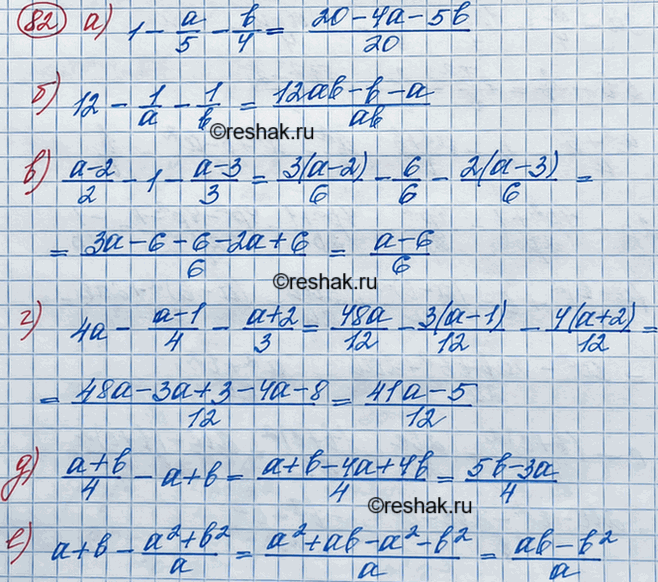 82 а) 1 - a/5 - b/4 = (20 - 4a - 5b)/20
б) 12 - 1/a - 1/b = (12ab - b - a)/ab
©reshak.ru
в) (a-2)/2 - 1 - (a-3)/3 = 3(a-2)/6 - 6/6 - 2(a-3)/6 =
= (3a - 6 - 6 - 2a + 6)/6 = (a-6)/6
©reshak.ru
г) 4a - (a-1)/4 - (a+2)/3 = 48a/12 - 3(a-1)/12 - 4(a+2)/12 =
= (48a - 3a + 3 - 4a - 8)/12 = (41a - 5)/12
д) (a+b)/4 - a + b = (a+b-4a+4b)/4 = (5b-3a)/4
©reshak.ru
е) a + b - (a²+b²)/a = (a²+ab-a²-b²)/a = (ab-b²)/a